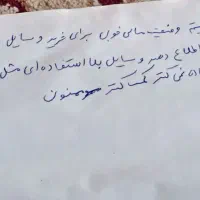 وضعیت مالی خوبی برای خرید وسایل
اطلاع دهید وسایل بلا استفاده ای مثل
کمک کند ممنون